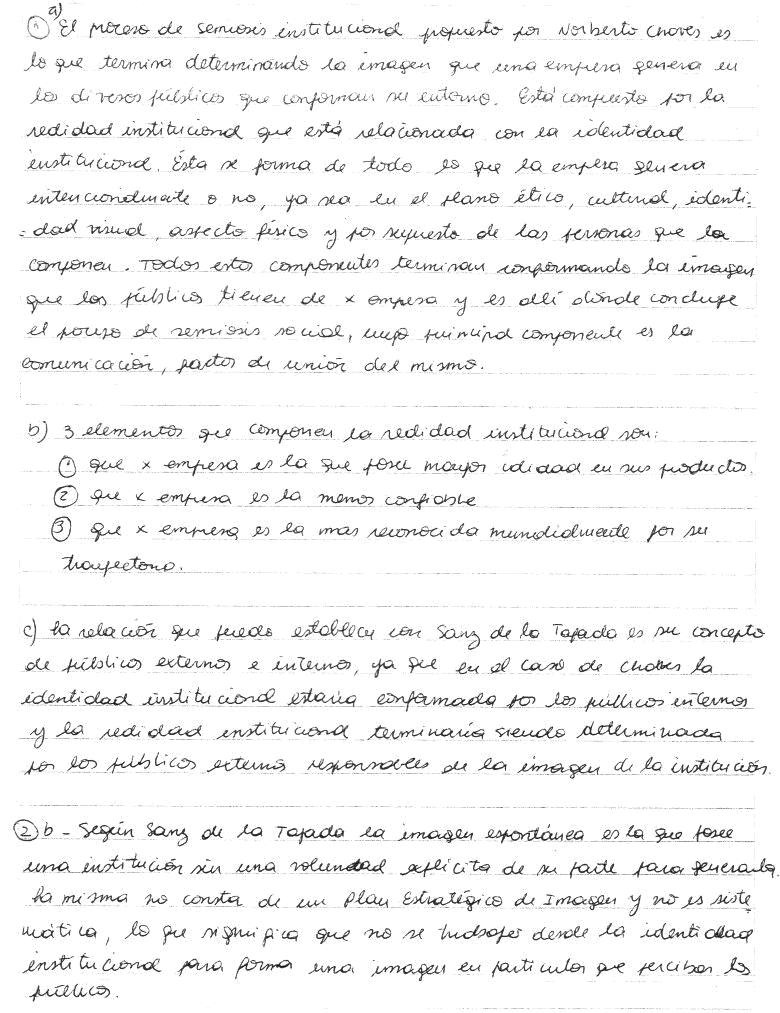 ① a) El proceso de semiosis institucional propuesto por Norberto Chaves es
lo que termina determinando la imagen que una empresa genera en
los diversos públicos que conforman su entorno. Está compuesto por la
realidad institucional que está relacionada con la identidad
institucional. Ésta se forma de todo lo que la empresa genera
intencionalmente o no, ya sea en el plano ético, cultural, identi-
-dad visual, aspecto físico y por supuesto de las personas que la
componen. Todos estos componentes terminan conformando la imagen
que los públicos tienen de x empresa y es allí dónde concluye
el proceso de semiosis social, cuyo principal componente es la
comunicación, factor de unión del mismo.
b) 3 elementos que componen la realidad institucional son:
① que x empresa es la que posee mayor calidad en sus productos.
② que x empresa es la menos confiable
③ que x empresa es la mas reconocida mundialmente por su
trayectoria.
c) La relación que puedo establecer con Sanz de la Tajada es su concepto
de públicos externos e internos, ya que en el caso de Chaves la
identidad institucional estaría conformada por los públicos internos
y la realidad institucional terminaría siendo determinada
por los públicos externos responsables de la imagen de la institución.
② b - Según Sanz de la Tajada la imagen espontánea es la que posee
una institución sin una voluntad explícita de su parte para generarla.
La misma no consta de un Plan Estratégico de Imagen y no es siste
mática, lo que significa que no se desde la identidad
institucional para forma una imagen en particular que perciban los
públicos.